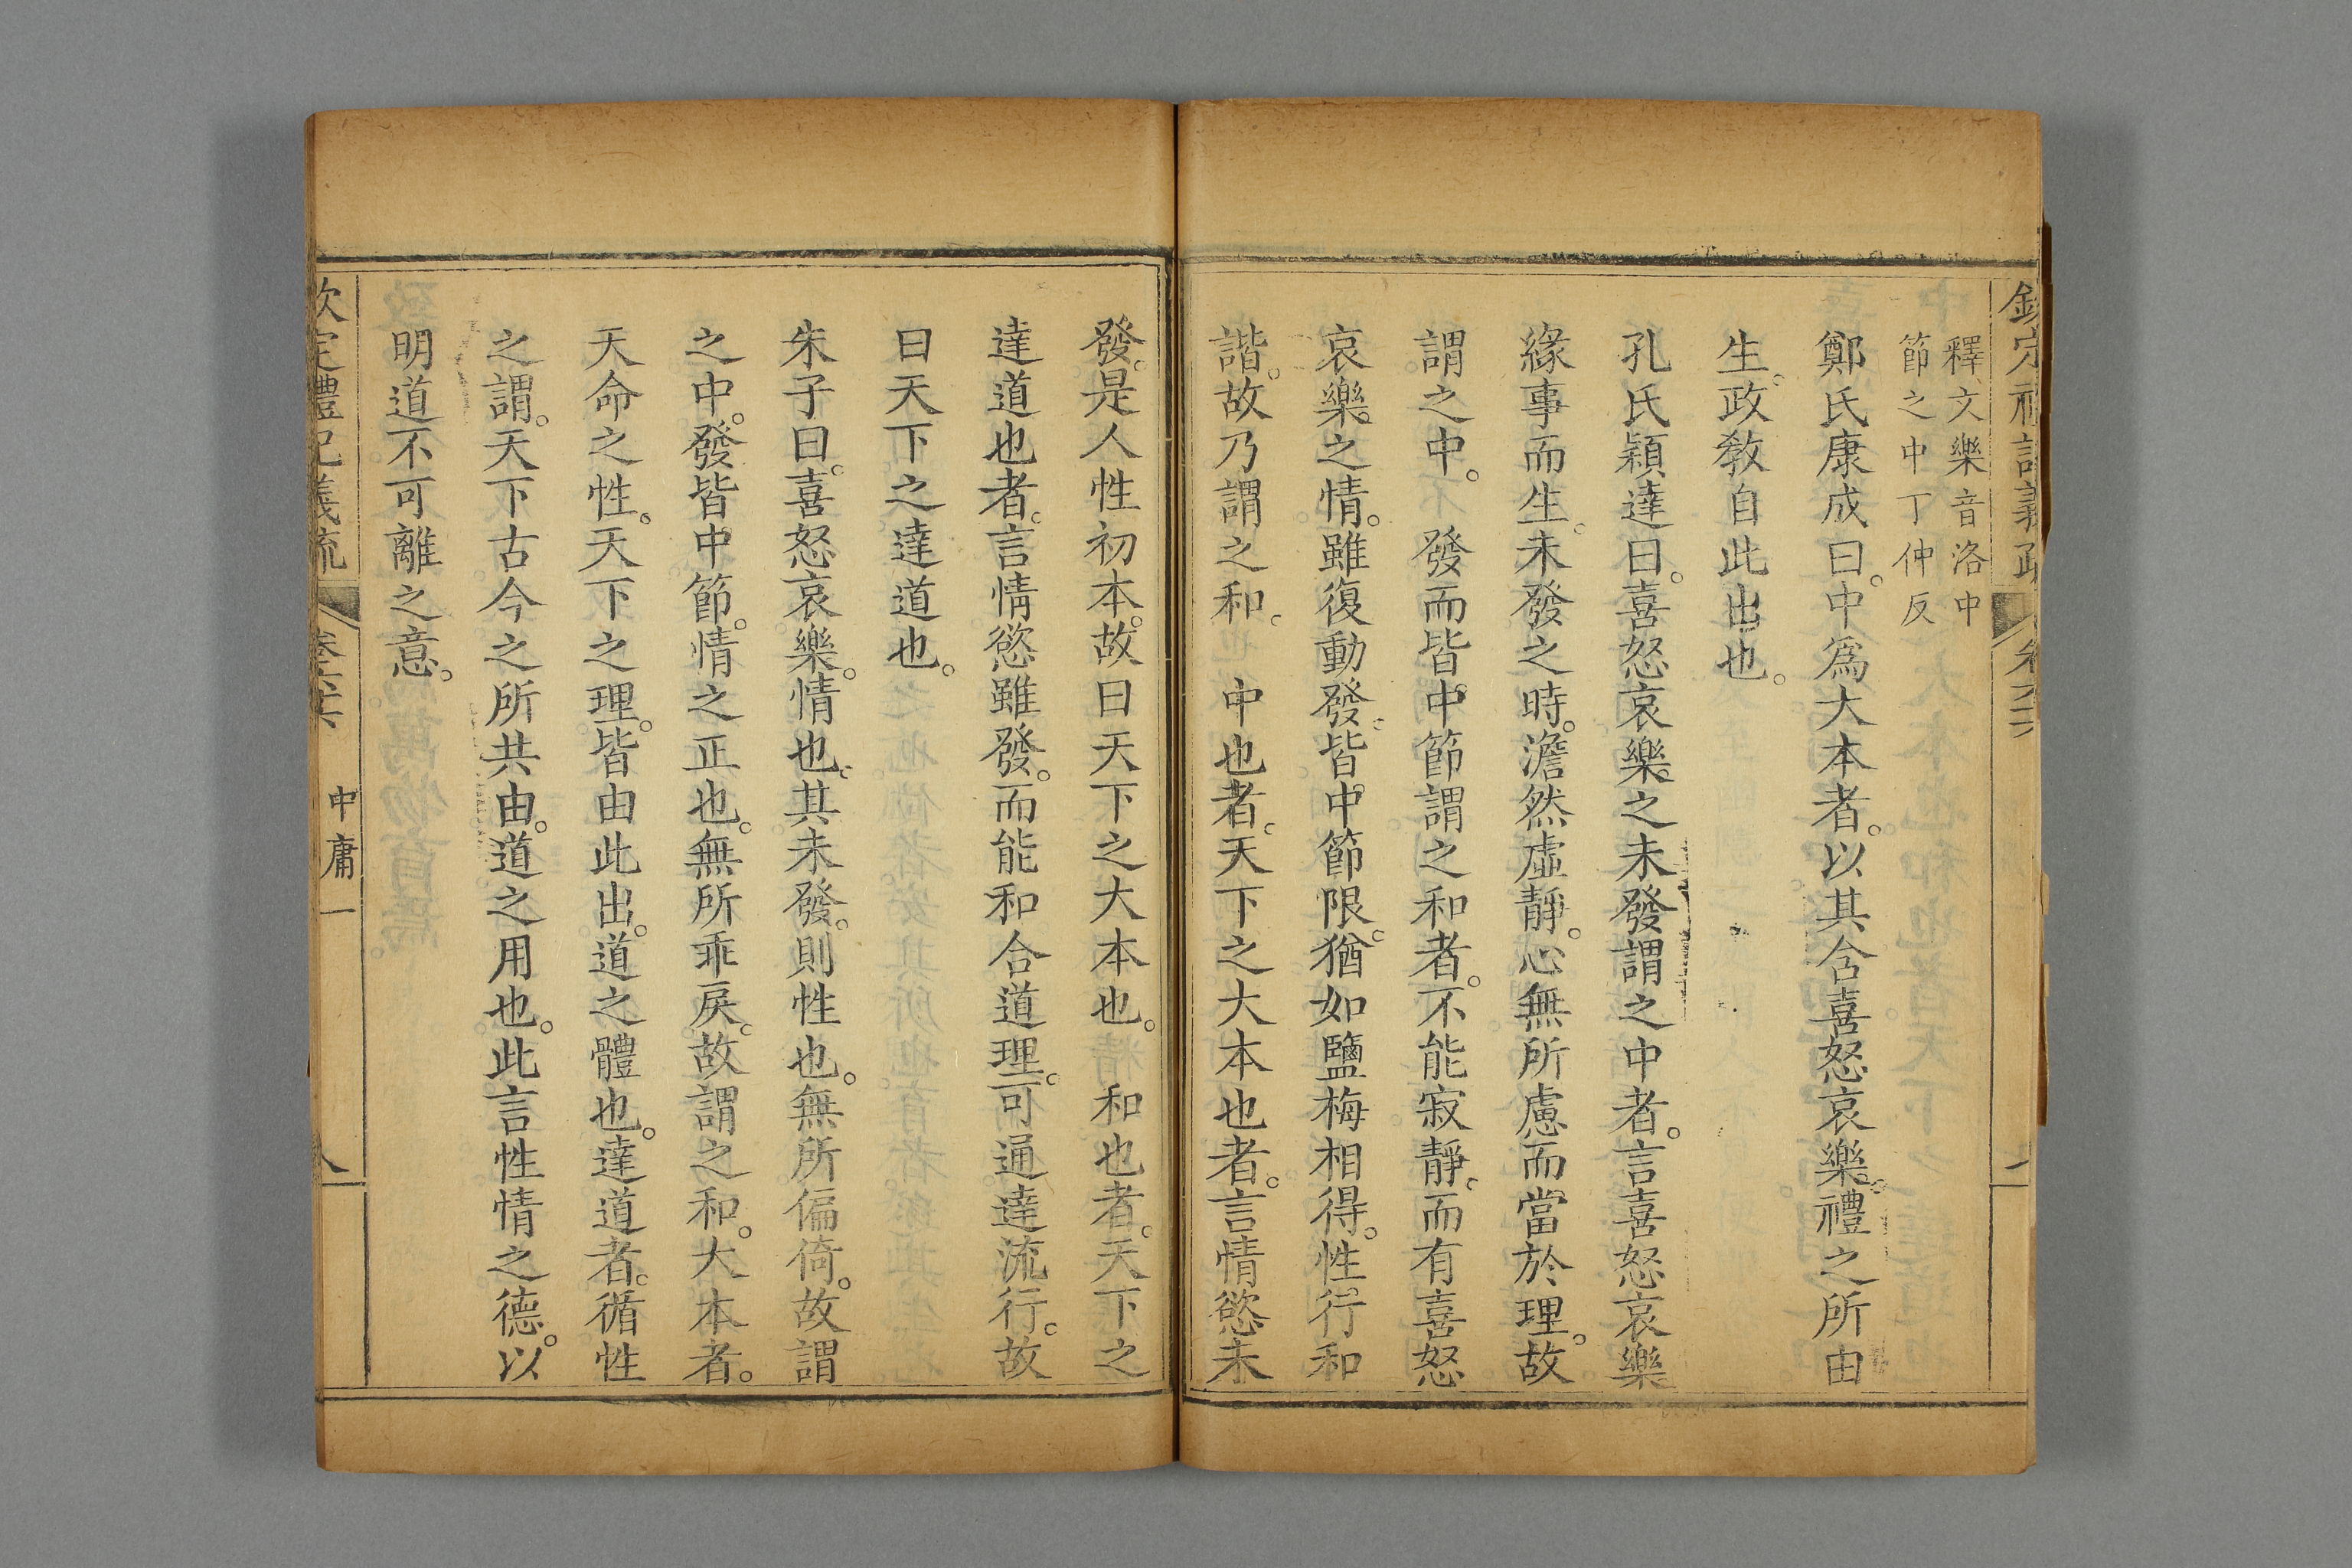 釋文樂音洛中
節之中丁仲反
鄭氏康成曰。中爲大本者。以其含喜怒哀樂。禮之所由
生。政教自此出也。
孔氏穎達曰。喜怒哀樂之未發謂之中者。言喜怒哀樂
緣事而生。未發之時。澹然虛靜。心無所慮而當於理。故
謂之中。 發而皆中節謂之和者。不能寂靜。而有喜怒
哀樂之情。雖復動發。皆中節限。猶如鹽梅相得。性行和
諧。故乃謂之和。 中也者。天下之大本也者。言情慾未
發。是人性初本。故曰天下之大本也。 和也者。天下之
達道也者。言情慾雖發。而能和合道理。可通達流行。故
曰天下之達道也。
朱子曰。喜怒哀樂。情也。其未發。則性也。無所偏倚。故謂
之中。發皆中節。情之正也。無所乖戾。故謂之和。大本者。
天命之性。天下之理。皆由此出。道之體也。達道者。循性
之謂。天下古今之所共由。道之用也。此言性情之德。以
明道不可離之意。
欽定禮記義疏
中庸一